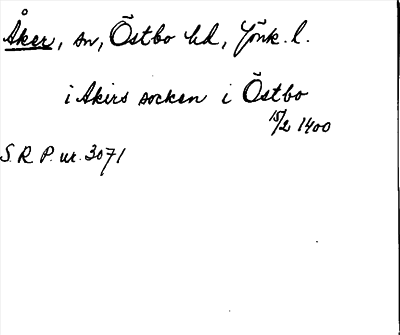 Åker, sn, Östbo hd, Jönk. l.
i Akirs socken i Östbo
15/2 1400
S. R. P. nr. 3071